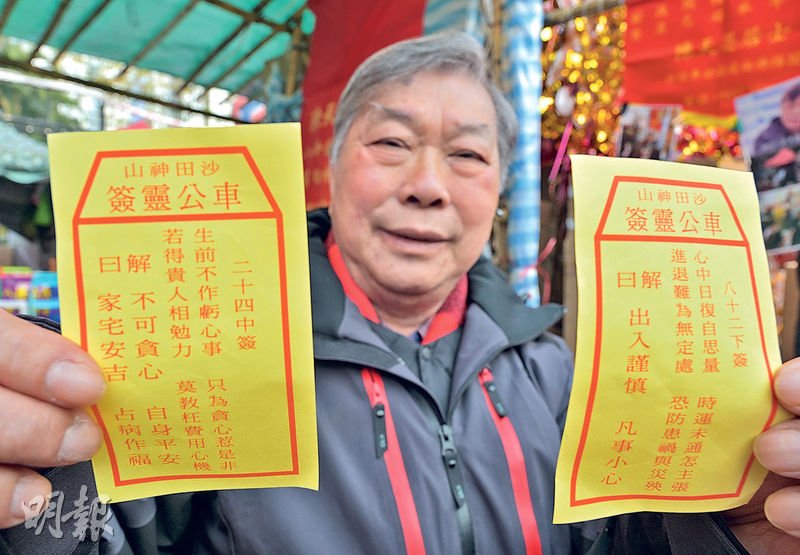 沙田神山
車公靈簽
二十四中簽
生前不作虧心事 只為貪心惹是非
若得貴人相勉力 莫教枉費用心機
解曰
不可貪心 自身平安
家宅安吉 占病作福
沙田神山
車公靈簽
八十二下簽
心中日復自思量 時運未通怎主張
進退難為無定處 恐防患禍與災殃
解曰
出入謹慎 凡事小心
明報